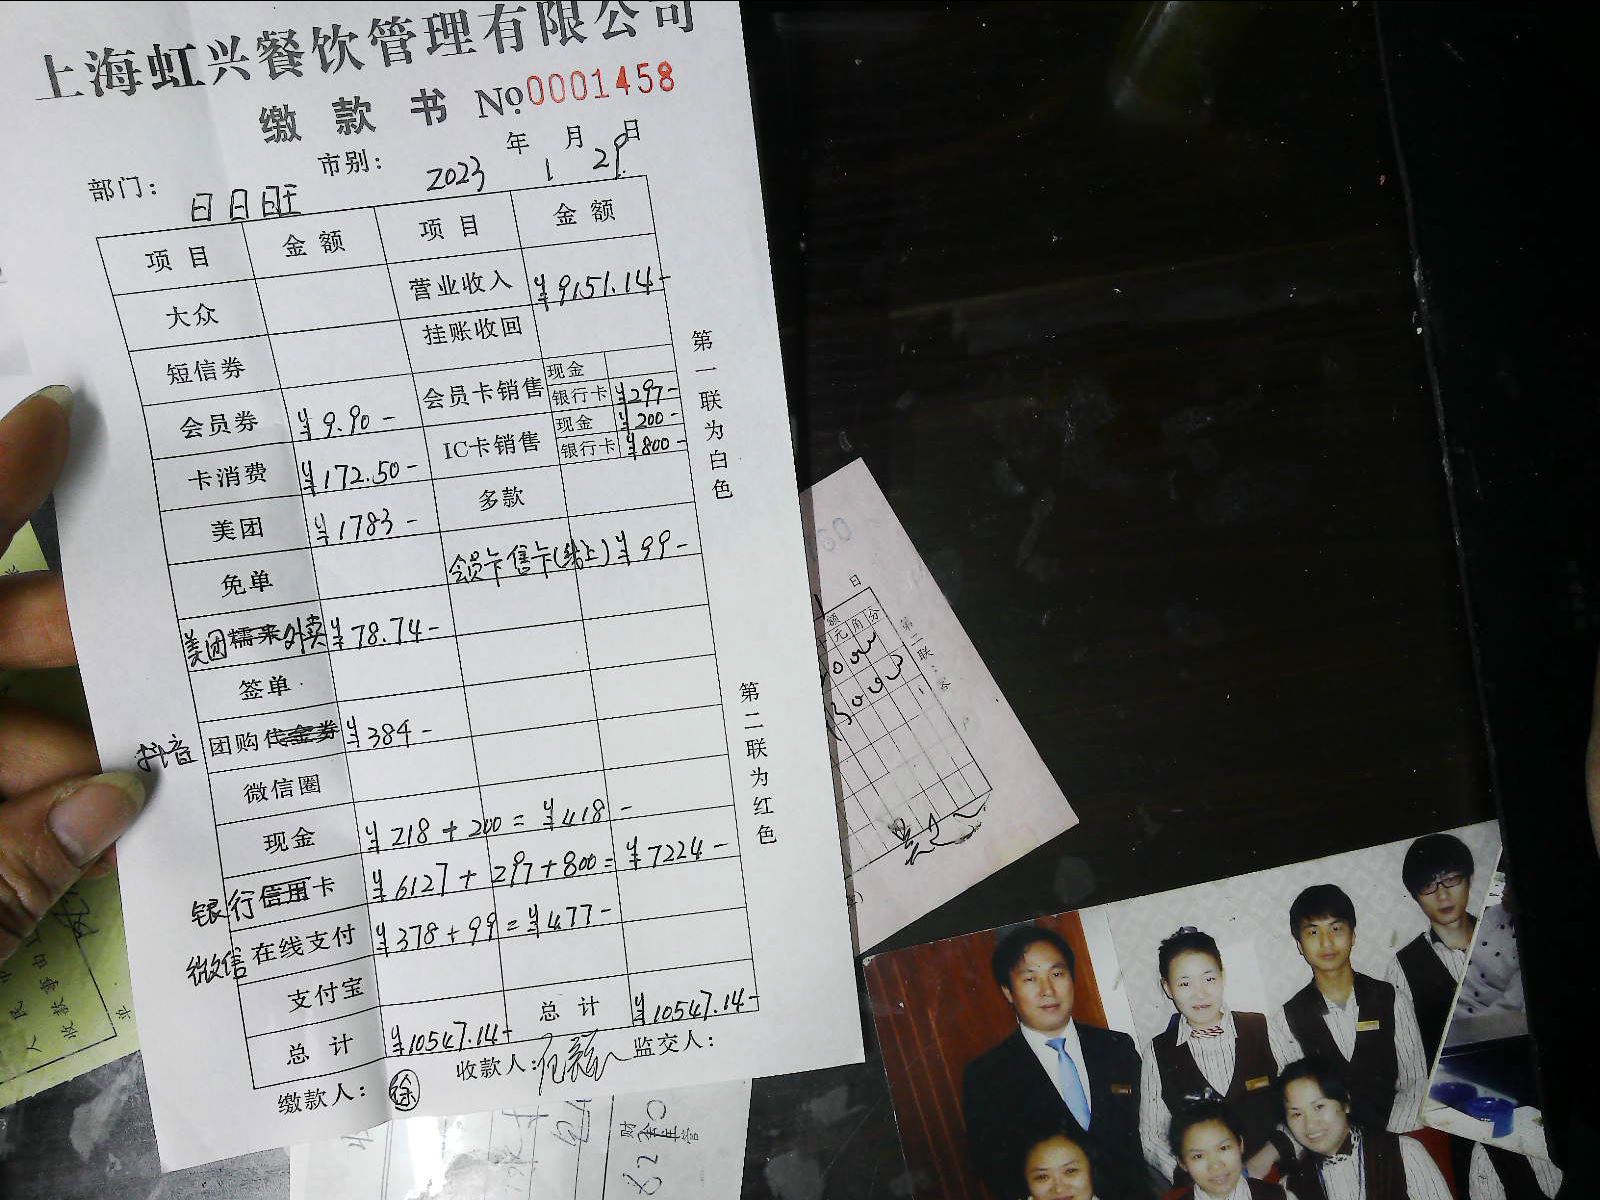 上海虹兴餐饮管理有限公司
缴款书 No 0001458
部门: 日日旺 市别: 2023 年 1 月 29 日
项目 金额 项目 金额
大众 营业收入 ¥9151.14-
短信券 挂账收回
会员券 ¥9.90- 会员卡销售 现金
银行卡 ¥297-
卡消费 ¥172.50- IC卡销售 现金 ¥200-
银行卡 ¥800-
美团 ¥1783- 多款
免单 会员卡售卡(线上) ¥99-
美团糯来外卖 ¥78.74-
签单
抖音 团购代金券 ¥384-
微信圈
现金 ¥218+200=¥418-
银行信用卡 ¥6127+297+800=¥7224-
微信在线支付 ¥378+99=¥477-
支付宝
总计 ¥10547.14- 总计 ¥10547.14-
缴款人: 徐 收款人: 监交人:
第一联为白色
第二联为红色
日
额
元角分
第二联:客